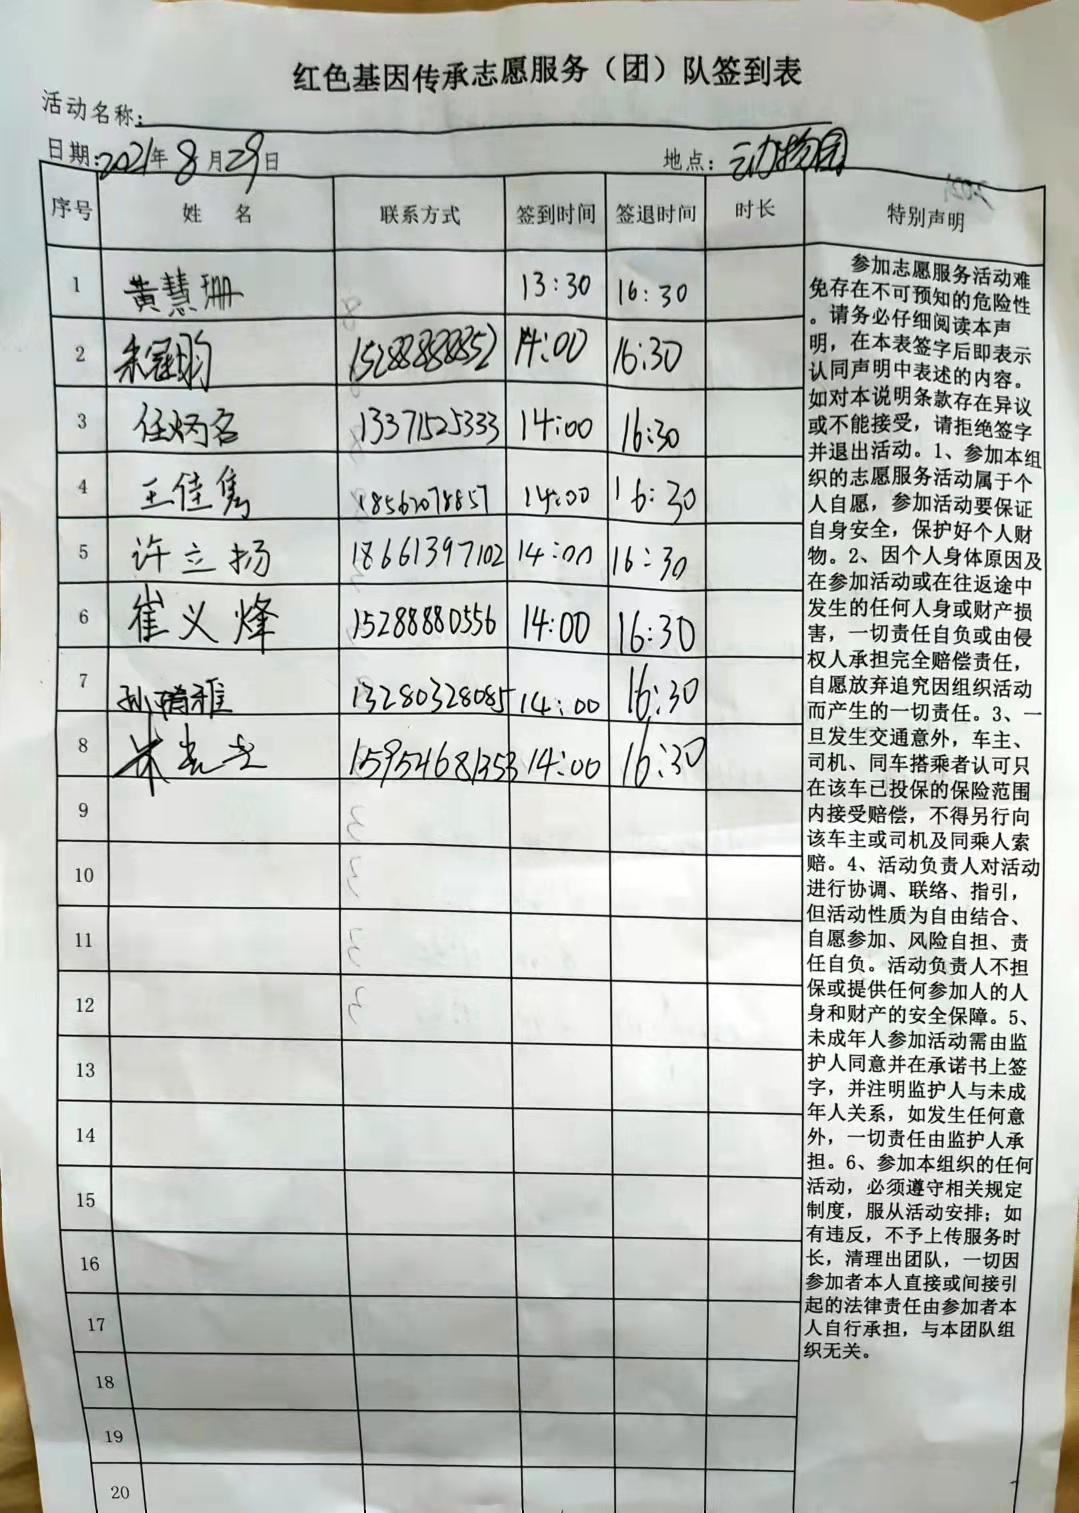 红色基因传承志愿服务（团）队签到表
活动名称：
日期：2021年8月29日 地点：动物园
序号 姓 名 联系方式 签到时间 签退时间 时长 特别声明
1 黄慧珊 13:30 16:30
2 15288888352 14:00 16:30
3 任炳名 13371525333 14:00 16:30
4 王佳隽 18562078857 14:00 16:30
5 许立扬 18661397102 14:00 16:30
6 崔义烽 15288880556 14:00 16:30
7 孙雅 13280328085 14:00 16:30
8 15954681353 14:00 16:30
9
10
11
12
13
14
15
16
17
18
19
20
参加志愿服务活动难
免存在不可预知的危险性
。请务必仔细阅读本声
明，在本表签字后即表示
认同声明中表述的内容。
如对本说明条款存在异议
或不能接受，请拒绝签字
并退出活动。1、参加本组
织的志愿服务活动属于个
人自愿，参加活动要保证
自身安全，保护好个人财
物。2、因个人身体原因及
在参加活动或在往返途中
发生的任何人身或财产损
害，一切责任自负或由侵
权人承担完全赔偿责任，
自愿放弃追究因组织活动
而产生的一切责任。3、一
旦发生交通意外，车主、
司机、同车搭乘者认可只
在该车已投保的保险范围
内接受赔偿，不得另行向
该车主或司机及同乘人索
赔。4、活动负责人对活动
进行协调、联络、指引，
但活动性质为自由结合、
自愿参加、风险自担、责
任自负。活动负责人不担
保或提供任何参加人的人
身和财产的安全保障。5、
未成年人参加活动需由监
护人同意并在承诺书上签
字，并注明监护人与未成
年人关系，如发生任何意
外，一切责任由监护人承
担。6、参加本组织的任何
活动，必须遵守相关规定
制度，服从活动安排；如
有违反，不予上传服务时
长，清理出团队，一切因
参加者本人直接或间接引
起的法律责任由参加者本
人自行承担，与本团队组
织无关。